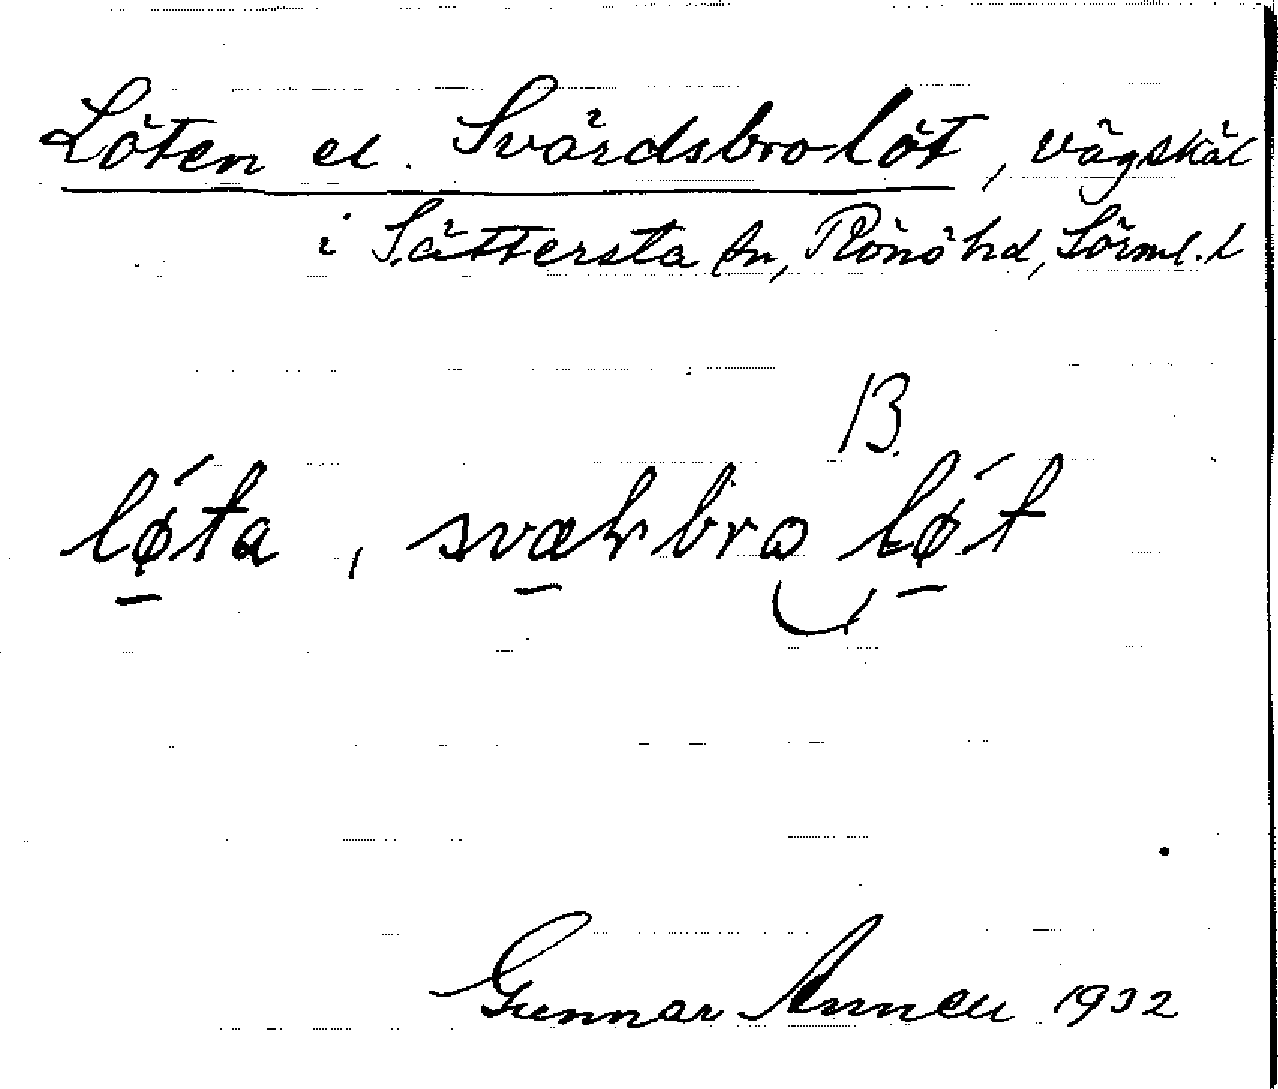 Löten el. Svärdsbro löt, vägskäl
i Sättersta sn, Rönö hd, Sörml. l
B.
lǿta, svæhr bro lǿt
Gunnar 1932